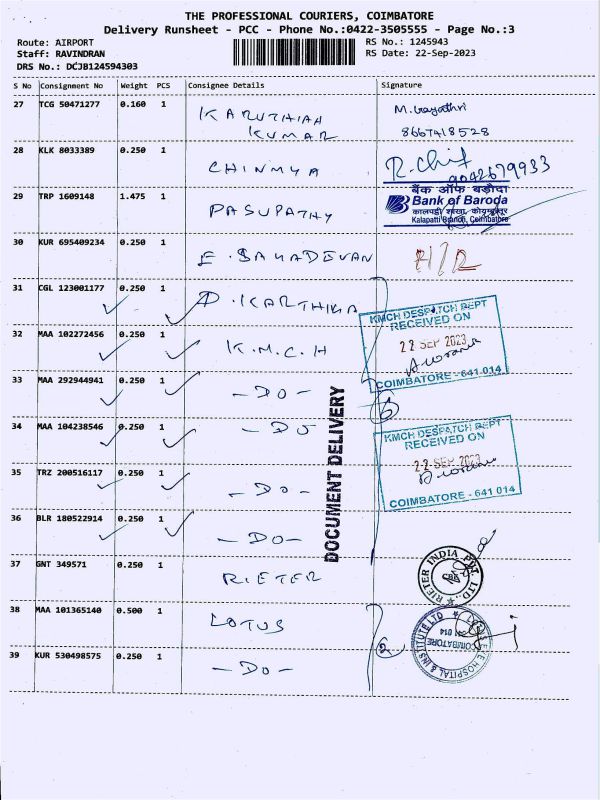 THE PROFESSIONAL COURIERS, COIMBATORE
Delivery Runsheet - PCC - Phone No.:0422-3505555 - Page No.:3
Route: AIRPORT
RS No.: 1245943
Staff: RAVINDRAN
RS Date: 22-Sep-2023
DRS No.: DCJB124594303
S No Consignment No Weight PCS Consignee Details Signature
27 TCG 50471277 0.160 1 KARUTHIAH KUMAR M. Gayathri
8667418528
28 KLK 8033389 0.250 1 CHINMYA R. Chit
9042679933
29 TRP 1609148 1.475 1 PASUPATHY
बैंक ऑफ़ बड़ौदा
Bank of Baroda
कालपट्टी शाखा, कोयम्बतूर
Kalapatti Branch, Coimbatore
30 KUR 695409234 0.250 1 E. SAHADEVAN
31 CGL 123001177 0.250 1 D. KARTHIKA
KMCH DESPATCH DEPT
RECEIVED ON
22 SEP 2023
COIMBATORE - 641 014
32 MAA 102272456 0.250 1 K.M.C.H
33 MAA 292944941 0.250 1 - DO -
6
34 MAA 104238546 0.250 1 - DO
KMCH DESPATCH DEPT
RECEIVED ON
22 SEP 2023
COIMBATORE - 641 014
DOCUMENT DELIVERY
35 TRZ 200516117 0.250 1 - DO -
36 BLR 180522914 0.250 1 - DO -
37 GNT 349571 0.250 1 RIETER
RIETER INDIA PVT. LTD.
38 MAA 101365140 0.500 1 LOTUS
2
LOTUS EYE HOSPITAL & INSTITUTE LTD
COIMBATORE
641 014
39 KUR 530498575 0.250 1 - DO -